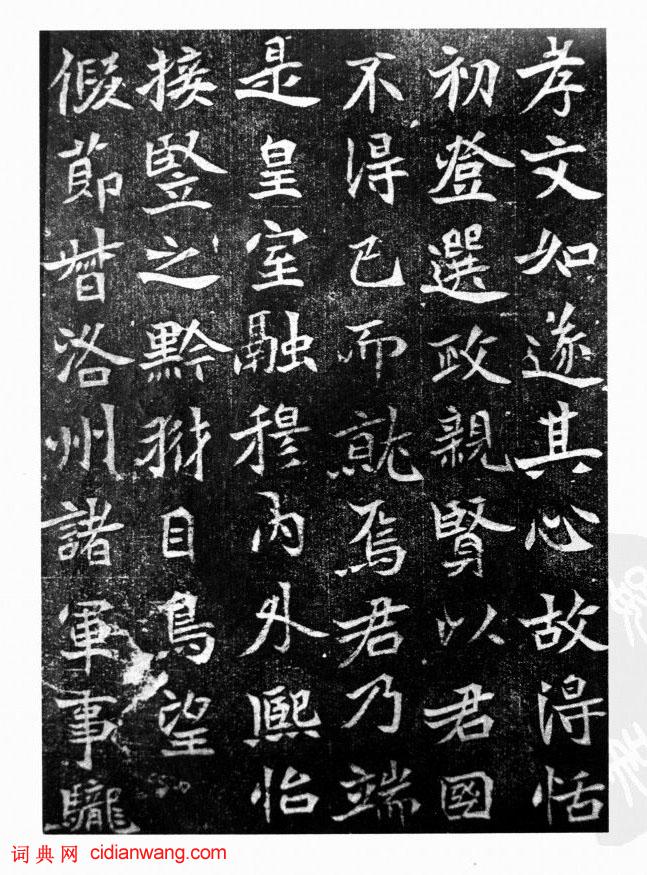 孝文如遂其心故得恬
初登選政親賢以君國
不得已而就焉君乃端
是皇室融穆內外熙怡
接豎之黔目鳥望
假節督洛州諸軍事
词典网 cidianwang.com